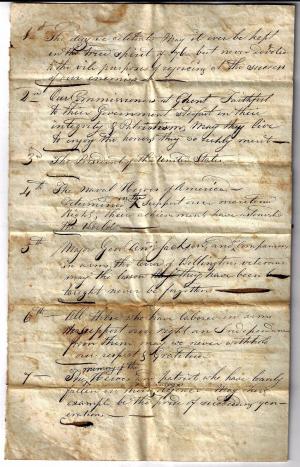 1st The day we celebrate May it ever be kept
in the true spirit of 76, but never devoted
to the vile purpose of rejoicing at the success
of our enemies
2nd Our Commissioners at Ghent faithful
to their Government in their
integrity & Patriotism, May they live
to enjoy the honors they so richly merit
3d The President of the United States
4th The Naval Heroes of America
determined to support our maritime
Rights, their achievements have astonished
the World
5th Major Genl Andw Jackson, and companions
in arms, the of Wellingtons veterans
may the lesson they have been
taught never be forgotten
6th All those who have labored in arms
to support our rights and Independence
from them may we never withhold
our respect & gratitude
memory of the
7 The Heroes and patriots who have bravely
fallen in their defence may their
example be the pride of succeeding gen-
eration